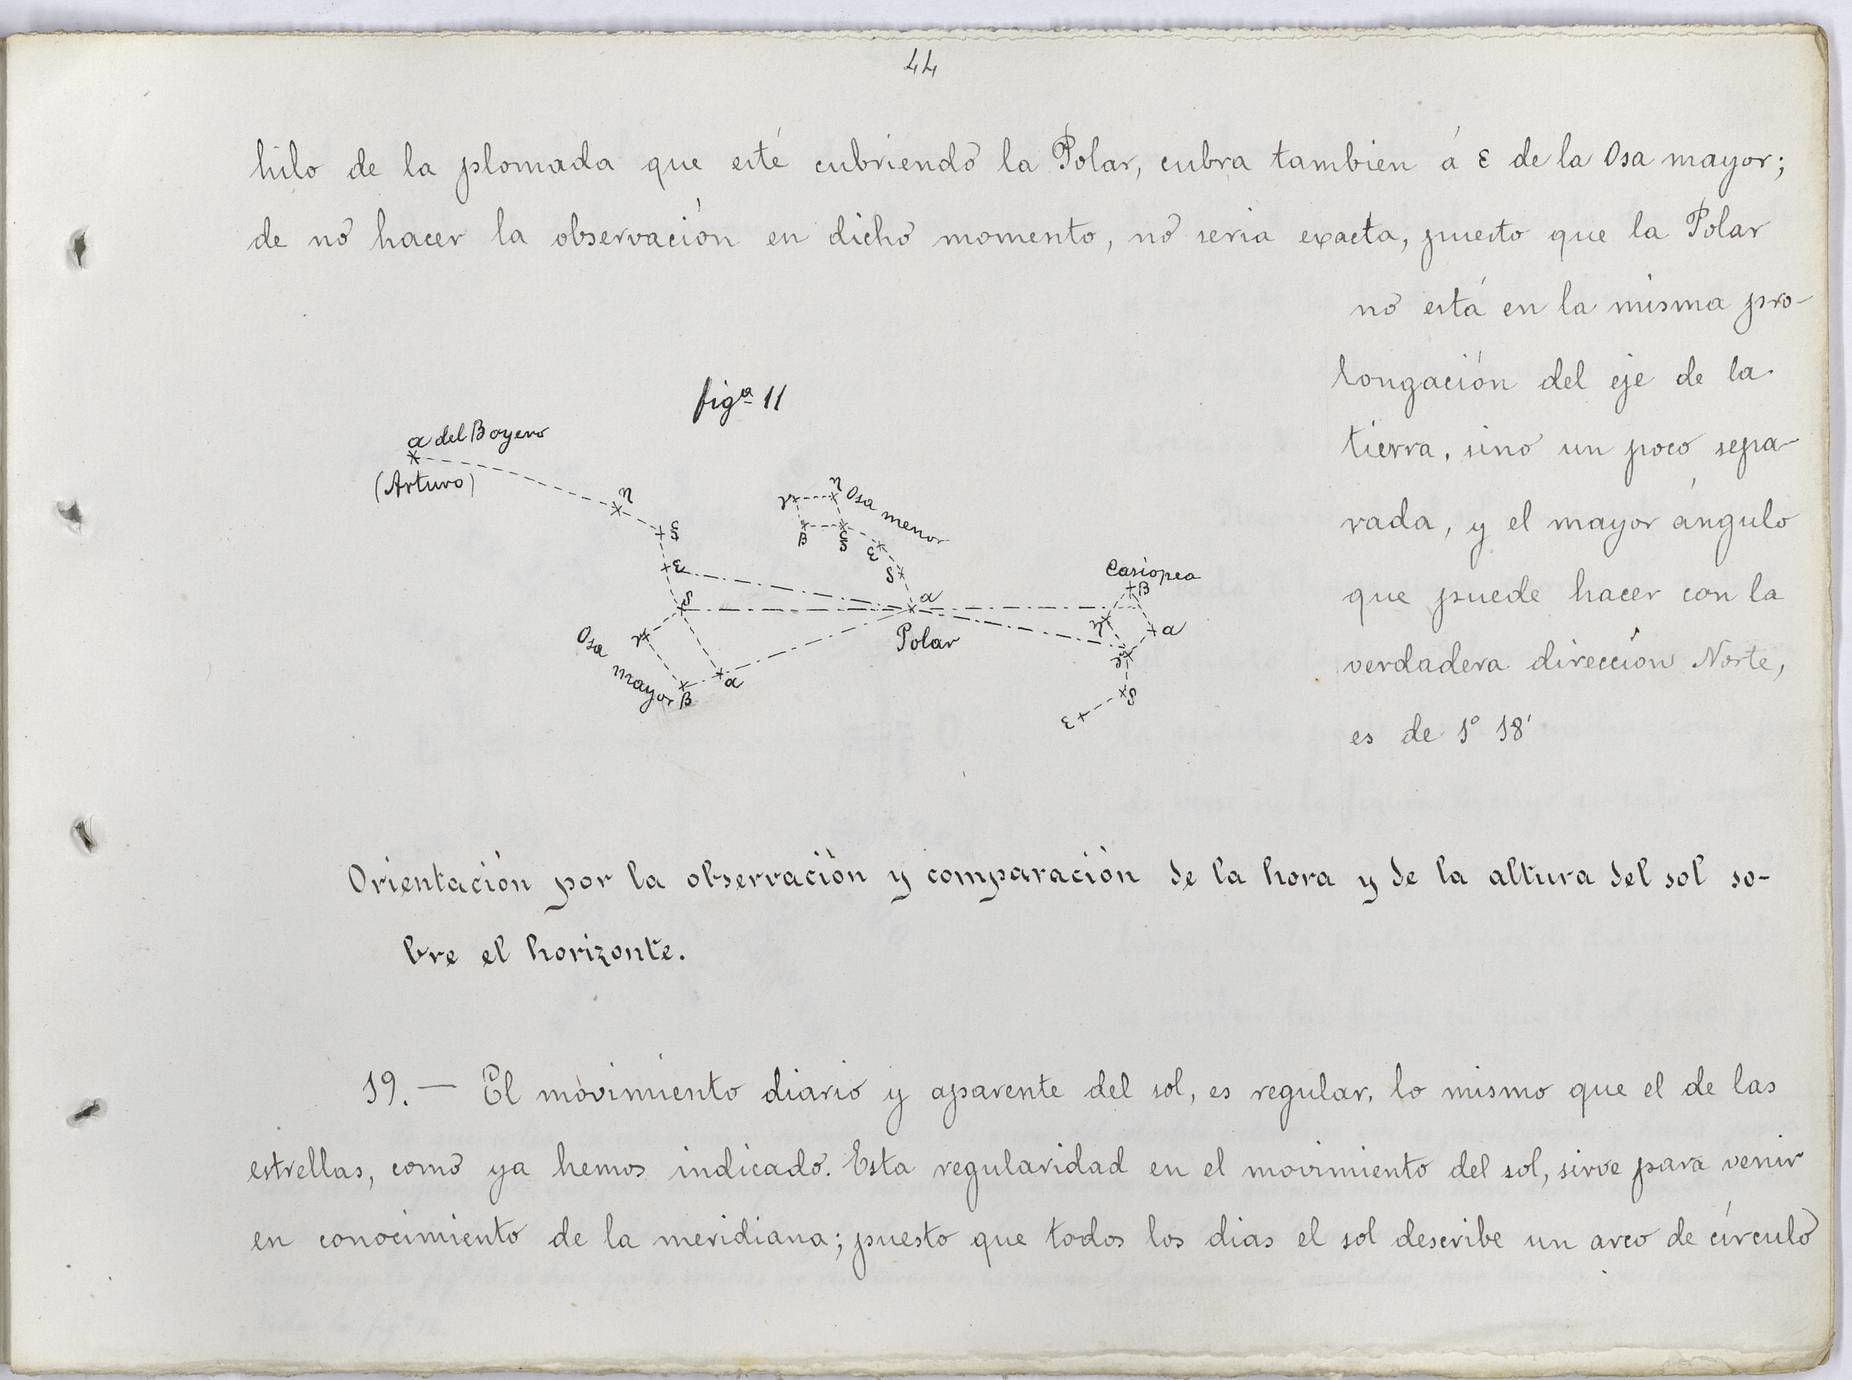 44
hilo de la plomada que esté cubriendo la Polar, cubra tambien á ε de la Osa mayor;
de no hacer la observación en dicho momento, no seria exacta, puesto que la Polar
no está en la misma pro-
longación del eje de la
tierra, sino un poco sepa-
rada, y el mayor ángulo
que puede hacer con la
verdadera dirección Norte,
es de 1º 18'
figª 11
α del Boyero
(Arturo)
η
ξ
ε
δ
γ
Osa mayor
β
α
γ
η
Osa menor
β
ξ
ε
δ
α
Polar
Casiopea
β
η
α
γ
δ
ε
Orientación por la observación y comparación de la hora y de la altura del sol so-
bre el horizonte.
19. — El movimiento diario y aparente del sol, es regular, lo mismo que el de las
estrellas, como ya hemos indicado. Esta regularidad en el movimiento del sol, sirve para venir
en conocimiento de la meridiana; puesto que todos los dias el sol describe un arco de círculo